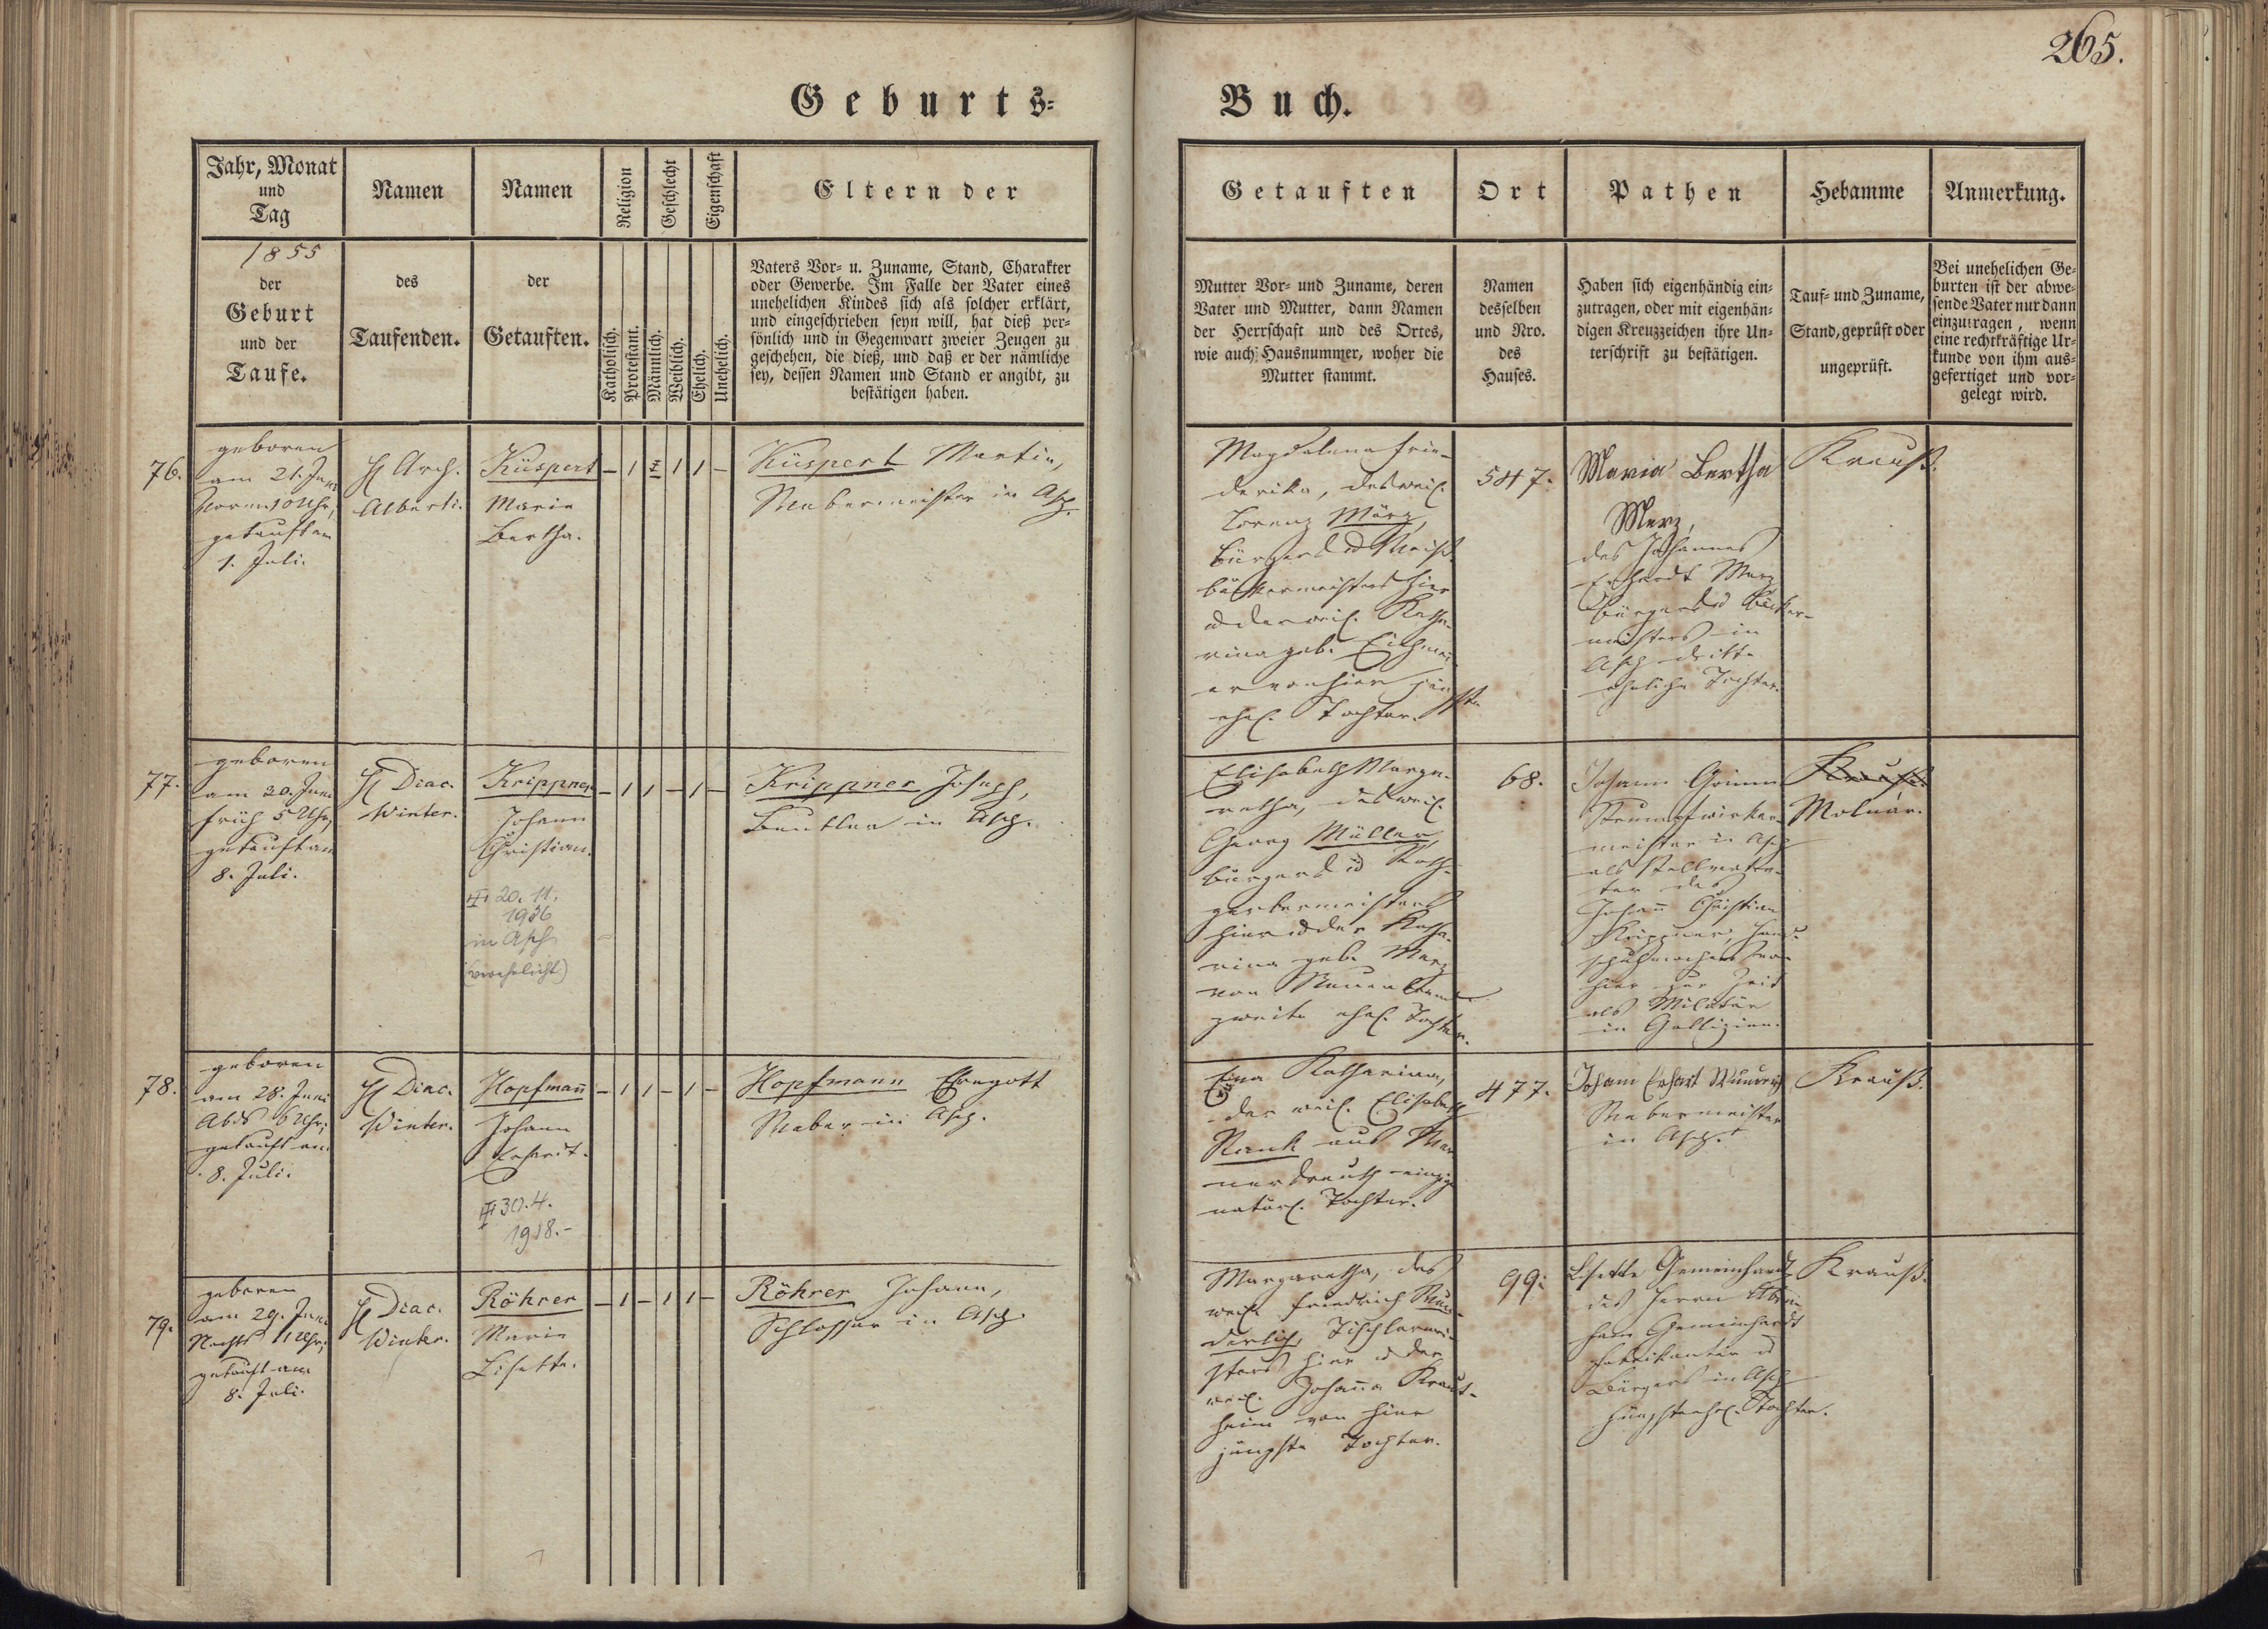 265.
Geburts-
Buch.
Jahr, Monat
und
Tag
1855
der
Geburt
und der
Taufe.
Namen
des
Taufenden.
Namen
der
Getauften.
Religion
Katholisch.
Protestant.
Geschlecht
Männlich.
Weiblich.
Eigenschaft
Ehelich.
Unehelich.
Eltern der
Vaters Vor- u. Zuname, Stand, Charakter
oder Gewerbe. Im Falle der Vater eines
unehelichen Kindes sich als solcher erklärt,
und eingeschrieben seyn will, hat dieß per-
sönlich und in Gegenwart zweier Zeugen zu
geschehen, die dieß, und daß er der nämliche
sey, dessen Namen und Stand er angibt, zu
bestätigen haben.
Getauften
Mutter Vor- und Zuname, deren
Vater und Mutter, dann Namen
der Herrschaft und des Ortes,
wie auch Hausnummer, woher die
Mutter stammt.
Ort
Namen
desselben
und Nro.
des
Hauses.
Pathen
Haben sich eigenhändig ein-
zutragen, oder mit eigenhän-
digen Kreuzzeichen ihre Un-
terschrift zu bestätigen.
Hebamme
Tauf- und Zuname,
Stand, geprüft oder
ungeprüft.
Anmerkung.
Bei unehelichen Ge-
burten ist der abwe-
sende Vater nur dann
einzutragen, wenn
eine rechtkräftige Ur-
kunde von ihm aus-
gefertiget und vor-
gelegt wird.
76.
geboren
am 21. Juni
Vorm. 10 Uhr,
getauft am
1. Juli.
H Arch.
Alberti.
Küspert
Marie
Bertha.
– 1 1 1 –
Küspert Martin,
Webermeister in Asch.
Magdalena Frie-
derika, des weil.
Lorenz März,
Bürgers u Weiß-
bäckermeisters hier
u der weil. Katha-
rina geb.
er von hier jüngste
ehel. Tochter.
547.
Maria Bertha
Merz,
des Johannes
Erhardt Merz
Bürgers u Bäcker-
meisters in
Asch dritte
eheliche Tochter.
Krauß.
77.
geboren
am 20. Juni
früh 5 Uhr,
getauft am
8. Juli.
H Diac.
Winter.
Krippner
Johann
Christian.
20. 11.
1936
in Asch
(verehelicht)
– 1 1 – 1 –
Krippner Joseph,
Beutler in Asch.
Elisabeth Marga-
retha, des weil.
Georg Müller,
Bürgers u Roth-
gerbermeisters
hier u der Katha-
rina geb. Merz
von Neuenbrand
zweite ehel. Tochter.
68.
Johann Grimm
Strumpfwirker-
meister in Asch
als Stellvertre-
ter des
Johann Christian
Krippner, Hand-
schuhmachers von
hier zur Zeit
als Militär
in Gallizien.
Krauß.
Molnar.
78.
geboren
am 28. Juni
Abds 6 Uhr,
getauft am
8. Juli.
H Diac.
Winter.
Hopfmann
Johann
Erhardt.
30. 4.
1918.–
– 1 1 – 1 –
Hopfmann Ehregott
Weber in Asch.
Eva Katharina,
der weil. Elisabeth
Rank aus
einzige
natürl. Tochter.
477.
Johann Erhart Wunderlich
Webermeister
in Asch.
Krauß.
79.
geboren
am 29. Juni
Nachts 11 Uhr,
getauft am
8. Juli.
H Diac.
Winter.
Röhrer
Marie
Lisette.
– 1 – 1 1 –
Röhrer Johann,
Schlosser in Asch.
Margaretha, des
weil. Friedrich Wun-
derlich, Tischlermei-
sters hier u der
weil. Johanna Kraut-
heim von hier
jüngste Tochter.
99.
Lisette Gemeinhardt
des Herrn
Gemeinhardt
Fabrikanten u
Bürgers in Asch
jüngste ehel. Tochter.
Krauß.